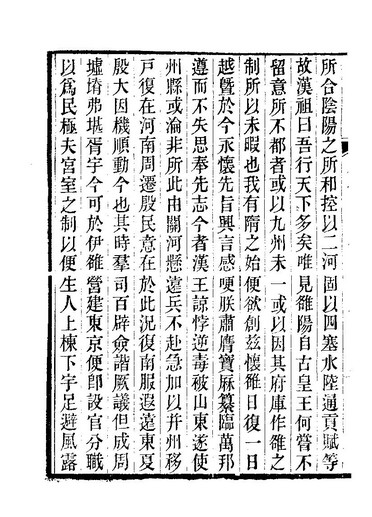 所合陰陽之所和控以二河固以四塞水陸通貢賦等
故漢祖曰吾行天下多矣唯見雒陽自古皇王何嘗不
留意所不都者或以九州未一或以因其府庫作雒之
制所以未暇也我有隋之始便欲創茲懷雒日復一日
越暨於今永懷先旨興言感哽朕肅膺寶厤纂臨萬邦
遵而不失思奉先志今者漢王諒悖逆毒被山東遂使
州縣或淪非所此由關河懸遠兵不赴急加以并州移
戸復在河南周遷殷民意在於此況復南服遐遠東夏
殷大因機順動今也其時羣司百辟僉諧厥議但成周
墟塉弗堪胥宇今可於伊雒營建東京便卽設官分職
以爲民極夫宮室之制以便生人上棟下宇足避風露